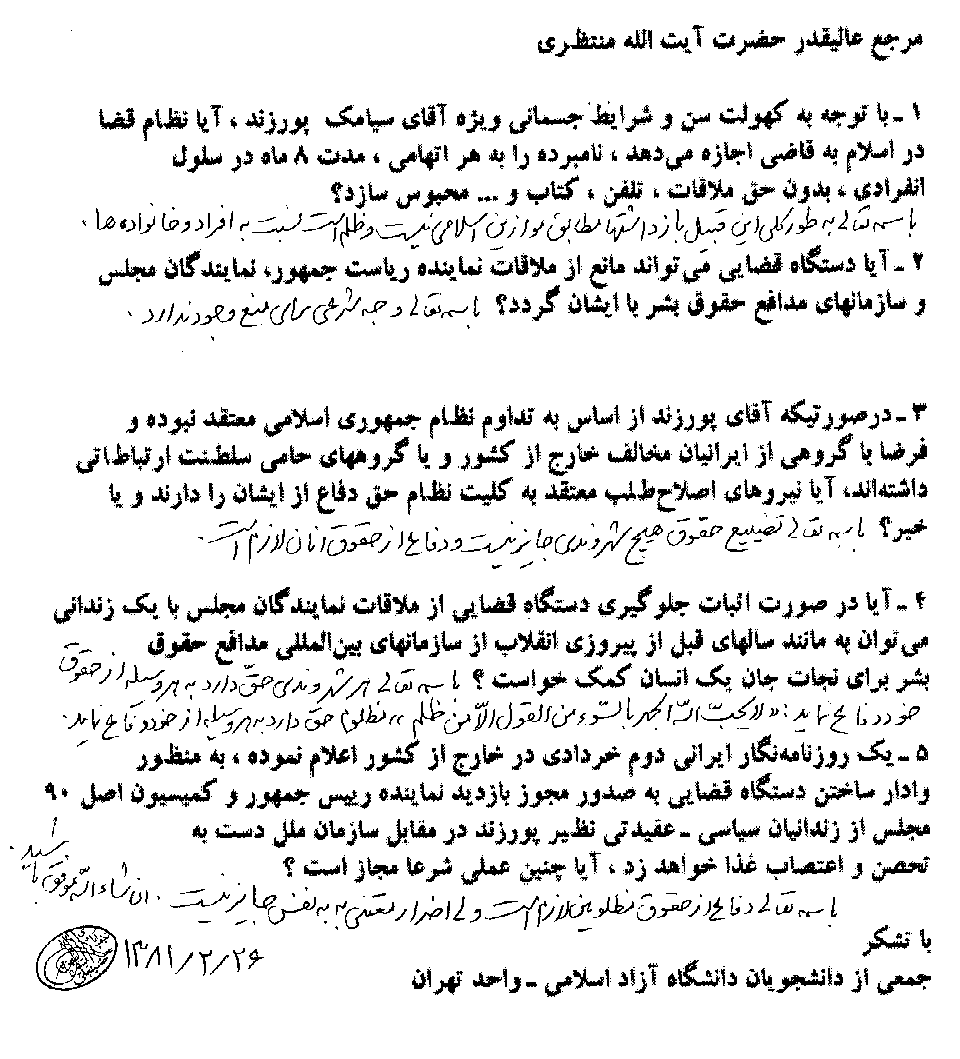 مرجع عالیقدر حضرت آیت الله منتظری
۱ ـ با توجه به کهولت سن و شرایط جسمانی ویژه آقای سیامک پورزند ، آیا نظام قضا
در اسلام به قاضی اجازه می‌دهد ، نامبرده را به هر اتهامی ، مدت ۸ ماه در سلول
انفرادی ، بدون حق ملاقات ، تلفن ، کتاب و ... محبوس سازد؟
باسمه تعالی به طور کلی این قبیل بازداشتها مطابق موازین اسلامی نیست و ظلم است نسبت به افراد و خانواده ها .
۲ ـ آیا دستگاه قضایی می‌تواند مانع از ملاقات نماینده ریاست جمهور، نمایندگان مجلس
و سازمانهای مدافع حقوق بشر با ایشان گردد؟ باسمه تعالی وجه شرعی برای منع وجود ندارد .
۳ ـ درصورتیکه آقای پورزند از اساس به تداوم نظام جمهوری اسلامی معتقد نبوده و
فرضا با گروهی از ایرانیان مخالف خارج از کشور و یا گروههای حامی سلطنت ارتباطاتی
داشته‌اند، آیا نیروهای اصلاح‌طلب معتقد به کلیت نظام حق دفاع از ایشان را دارند و یا
خیر؟ باسمه تعالی تضییع حقوق هیچ شهروندی جایز نیست و دفاع از حقوق انسان لازم است .
۴ ـ آیا در صورت اثبات جلوگیری دستگاه قضایی از ملاقات نمایندگان مجلس با یک زندانی
می‌توان به مانند سالهای قبل از پیروزی انقلاب از سازمانهای بین‌المللی مدافع حقوق
بشر برای نجات جان یک انسان کمک خواست ؟ باسمه تعالی هر شهروندی حق دارد به هر وسیله از حقوق
خود دفاع نماید : « لا یحب الله الجهر بالسوء من القول الا من ظلم » مظلوم حق دارد به هر وسیله از خود دفاع نماید .
۵ ـ یک روزنامه‌نگار ایرانی دوم خردادی در خارج از کشور اعلام نموده ، به منظور
وادار ساختن دستگاه قضایی به صدور مجوز بازدید نماینده رییس جمهور و کمیسیون اصل ۹۰
مجلس از زندانیان سیاسی ـ عقیدتی نظیر پورزند در مقابل سازمان ملل دست به
تحصن و اعتصاب غذا خواهد زد ، آیا چنین عملی شرعا مجاز است ؟
باسمه تعالی دفاع از حقوق مظلومین لازم است ولی اضرار معتنی به به نفس جایز نیست . ان شاء الله موفق باشید .
با تشکر
۱۳۸۱/۲/۲۶
جمعی از دانشجویان دانشگاه آزاد اسلامی ـ واحد تهران